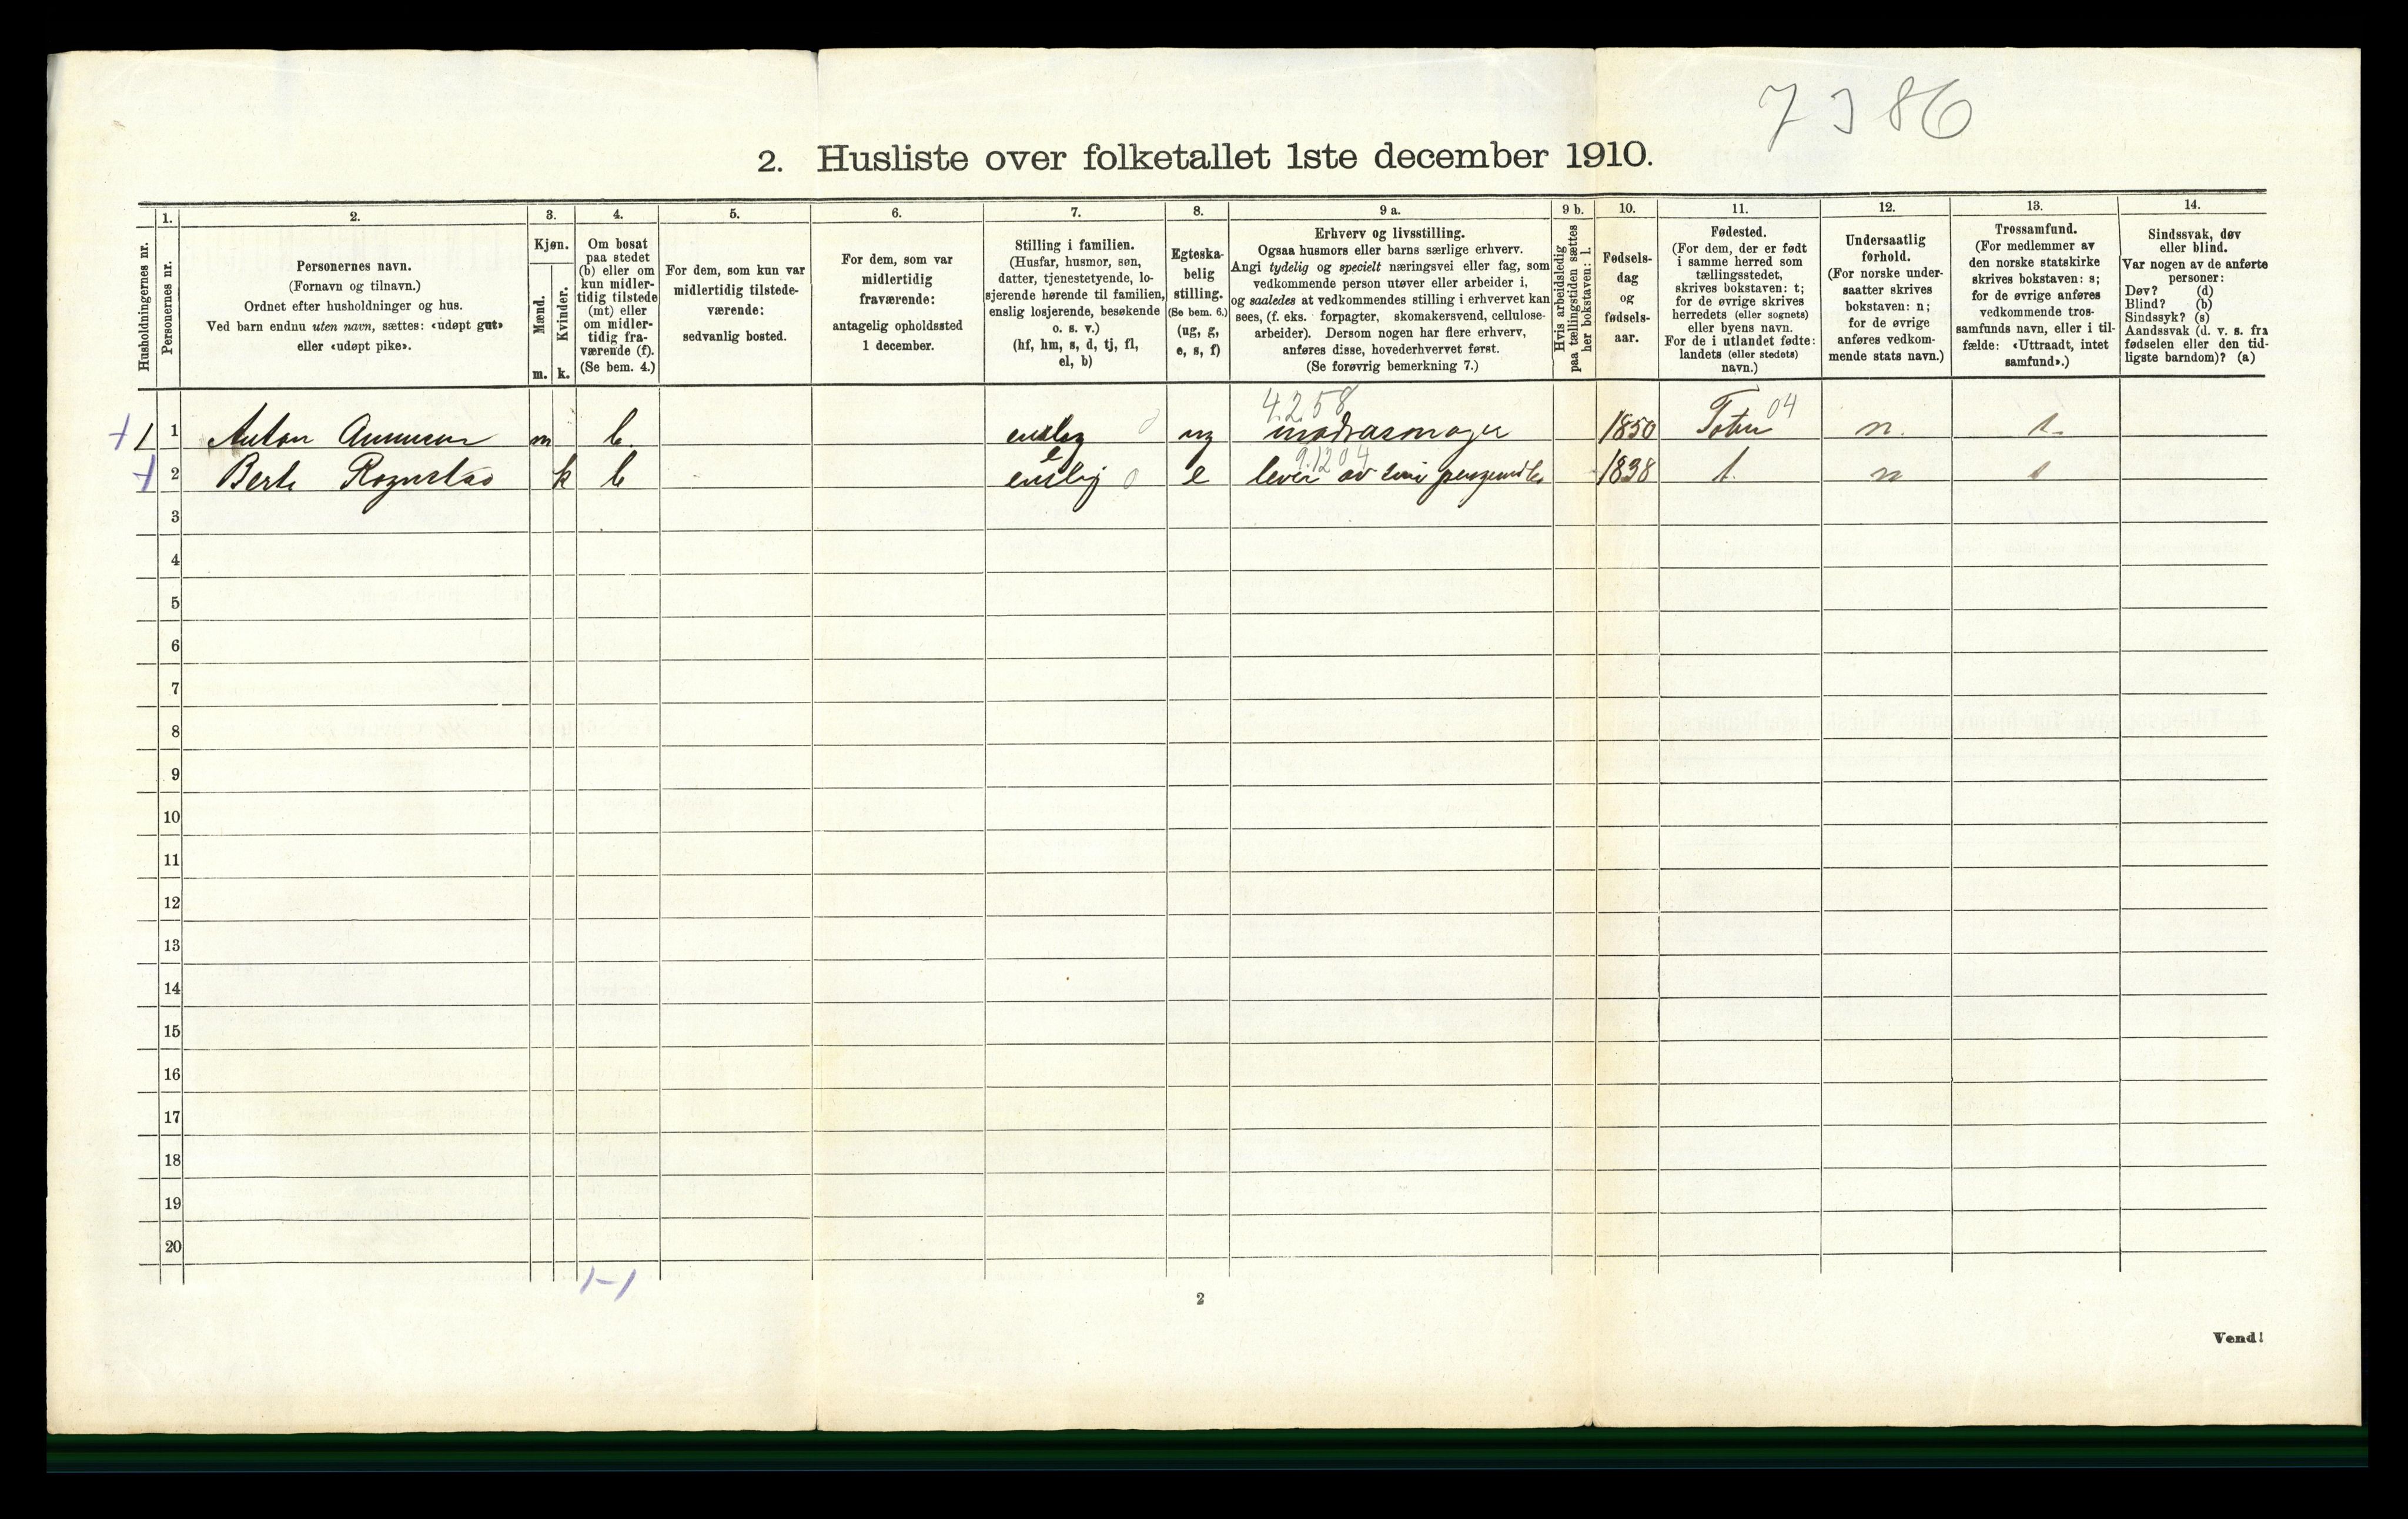 7386
2. Husliste over folketallet 1ste december 1910.
Husholdningernes nr.
1.
Personernes nr.
2.
Personernes navn.
(Fornavn og tilnavn.)
Ordnet efter husholdninger og hus.
Ved barn endnu uten navn, sættes: «udøpt gut»
eller «udøpt pike».
3.
Kjøn.
Mænd.
Kvinder.
m. k.
4.
Om bosat
paa stedet
(b) eller om
kun midler-
tidig tilstede
(mt) eller
om midler-
tidig fra-
værende (f).
(Se bem. 4.)
5.
For dem, som kun var
midlertidig tilstede-
værende:
sedvanlig bosted.
6.
For dem, som var
midlertidig
fraværende:
antagelig opholdssted
1 december.
7.
Stilling i familien.
(Husfar, husmor, søn,
datter, tjenestetyende, lo-
sjerende hørende til familien,
enslig losjerende, besøkende
o. s. v.)
(hf, hm, s, d, tj, fl,
el, b)
8.
Egteska-
belig
stilling.
(Se bem. 6.)
(ug, g,
e, s, f)
9 a.
Erhverv og livsstilling.
Ogsaa husmors eller barns særlige erhverv.
Angi tydelig og specielt næringsvei eller fag, som
vedkommende person utøver eller arbeider i,
og saaledes at vedkommendes stilling i erhvervet kan
sees, (f. eks. forpagter, skomakersvend, cellulose-
arbeider). Dersom nogen har flere erhverv,
anføres disse, hovederhvervet først.
(Se forøvrig bemerkning 7.)
9 b.
Hvis arbeidsledig
paa tællingstiden sættes
her bokstaven: l.
10.
Fødsels-
dag
og
fødsels-
aar.
11.
Fødested.
(For dem, der er født
i samme herred som
tællingsstedet,
skrives bokstaven: t;
for de øvrige skrives
herredets (eller sognets)
eller byens navn.
For de i utlandet fødte:
landets (eller stedets)
navn.)
12.
Undersaatlig
forhold.
(For norske under-
saatter skrives
bokstaven: n;
for de øvrige
anføres vedkom-
mende stats navn.)
13.
Trossamfund.
(For medlemmer av
den norske statskirke
skrives bokstaven: s;
for de øvrige anføres
vedkommende tros-
samfunds navn, eller i til-
fælde: «Uttraadt, intet
samfund».)
14.
Sindssvak, døv
eller blind.
Var nogen av de anførte
personer:
Døv? (d)
Blind? (b)
Sindssyk? (s)
Aandssvak (d. v. s. fra
fødselen eller den tid-
ligste barndom)? (a)
4.258
04
1 1 Anton m b. enslig ug 1850 Toten n. s
9.1204
2 Berte Rognstad k b enslig e lever av sine 1838 t. n s
3
4
5
6
7
8
9
10
11
12
13
14
15
16
17
18
19
20
1-1
2
Vend!